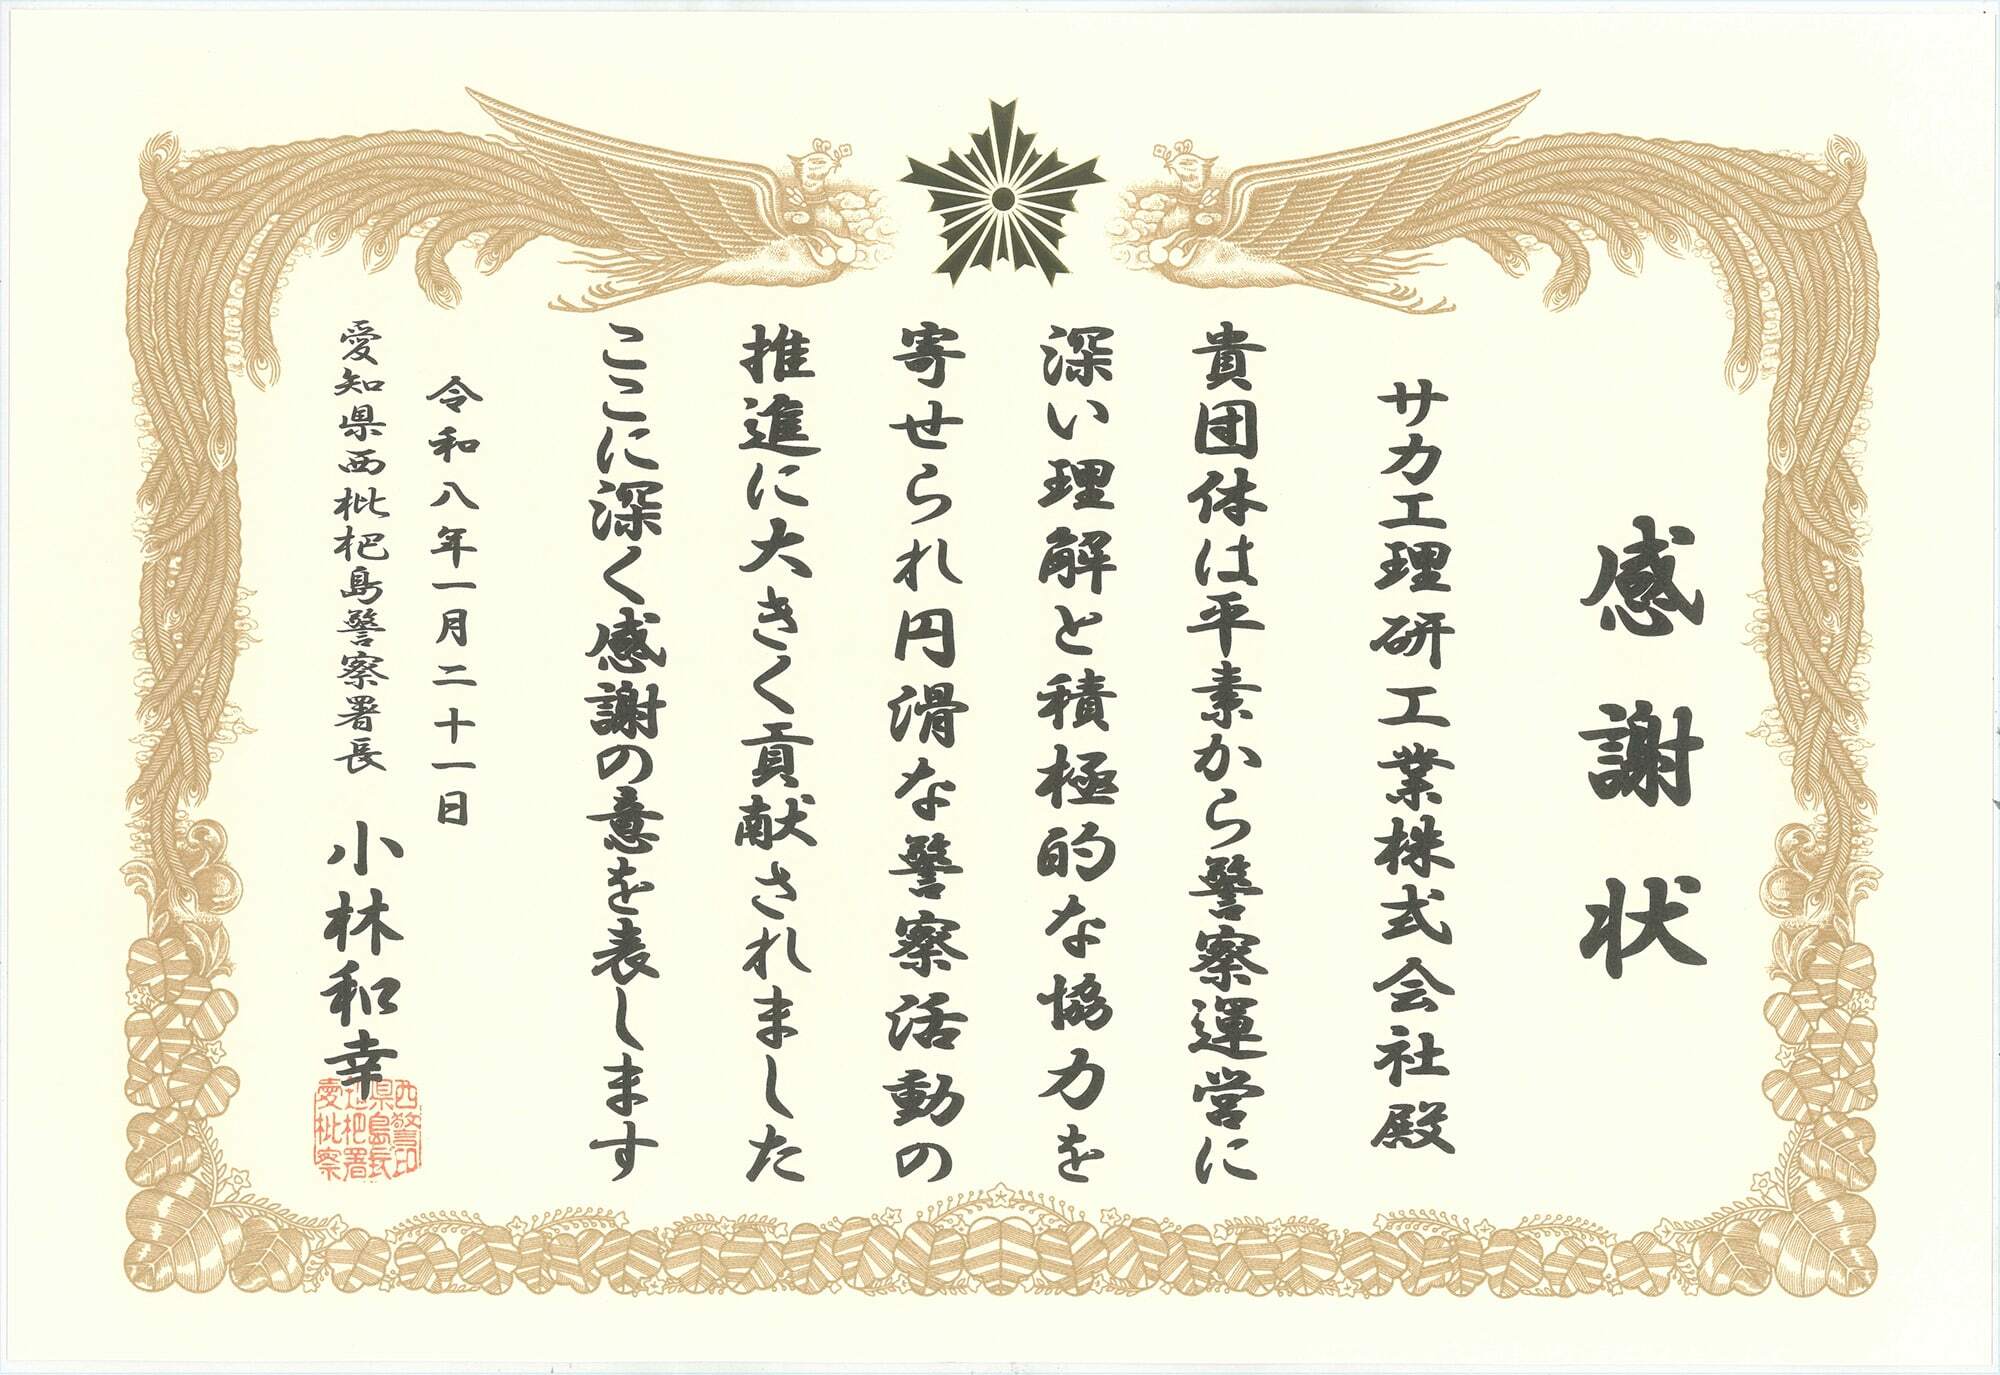 感謝状
サカエ理研工業株式会社殿
貴団体は平素から警察運営に
深い理解と積極的な協力を
寄せられ円滑な警察活動の
推進に大きく貢献されました
ここに深く感謝の意を表します
令和八年一月二十一日
愛知県西枇杷島警察署長 小林和幸